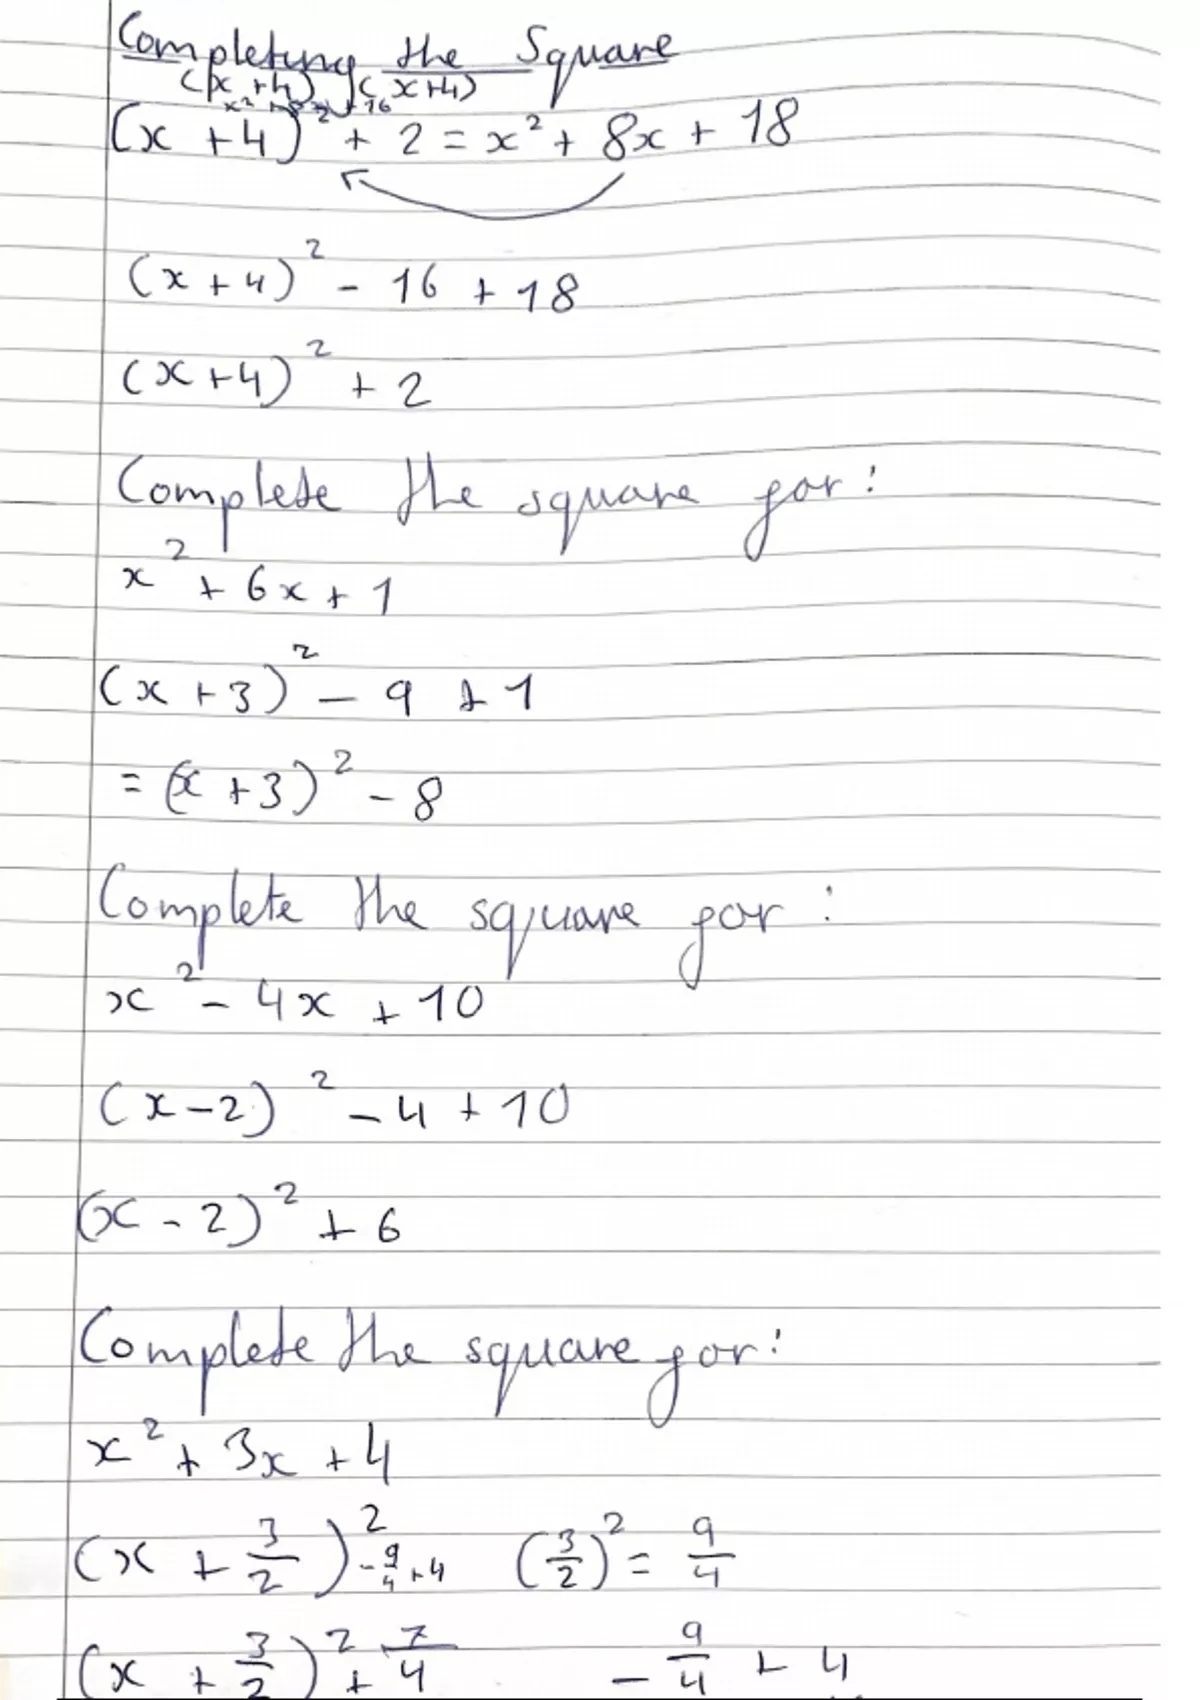 Completing the Square
(x + 4) (x + 4)
x² + 8x + 16
(x + 4)² + 2 = x² + 8x + 18
(x + 4)² - 16 + 18
(x + 4)² + 2
Complete the square for:
x² + 6x + 1
(x + 3)² - 9 + 1
= (x + 3)² - 8
Complete the square for:
x² - 4x + 10
(x - 2)² - 4 + 10
(x - 2)² + 6
Complete the square for:
x² + 3x + 4
(x + 3/2)² - 9/4 + 4 (3/2)² = 9/4
(x + 3/2)² + 7/4 - 9/4 + 4